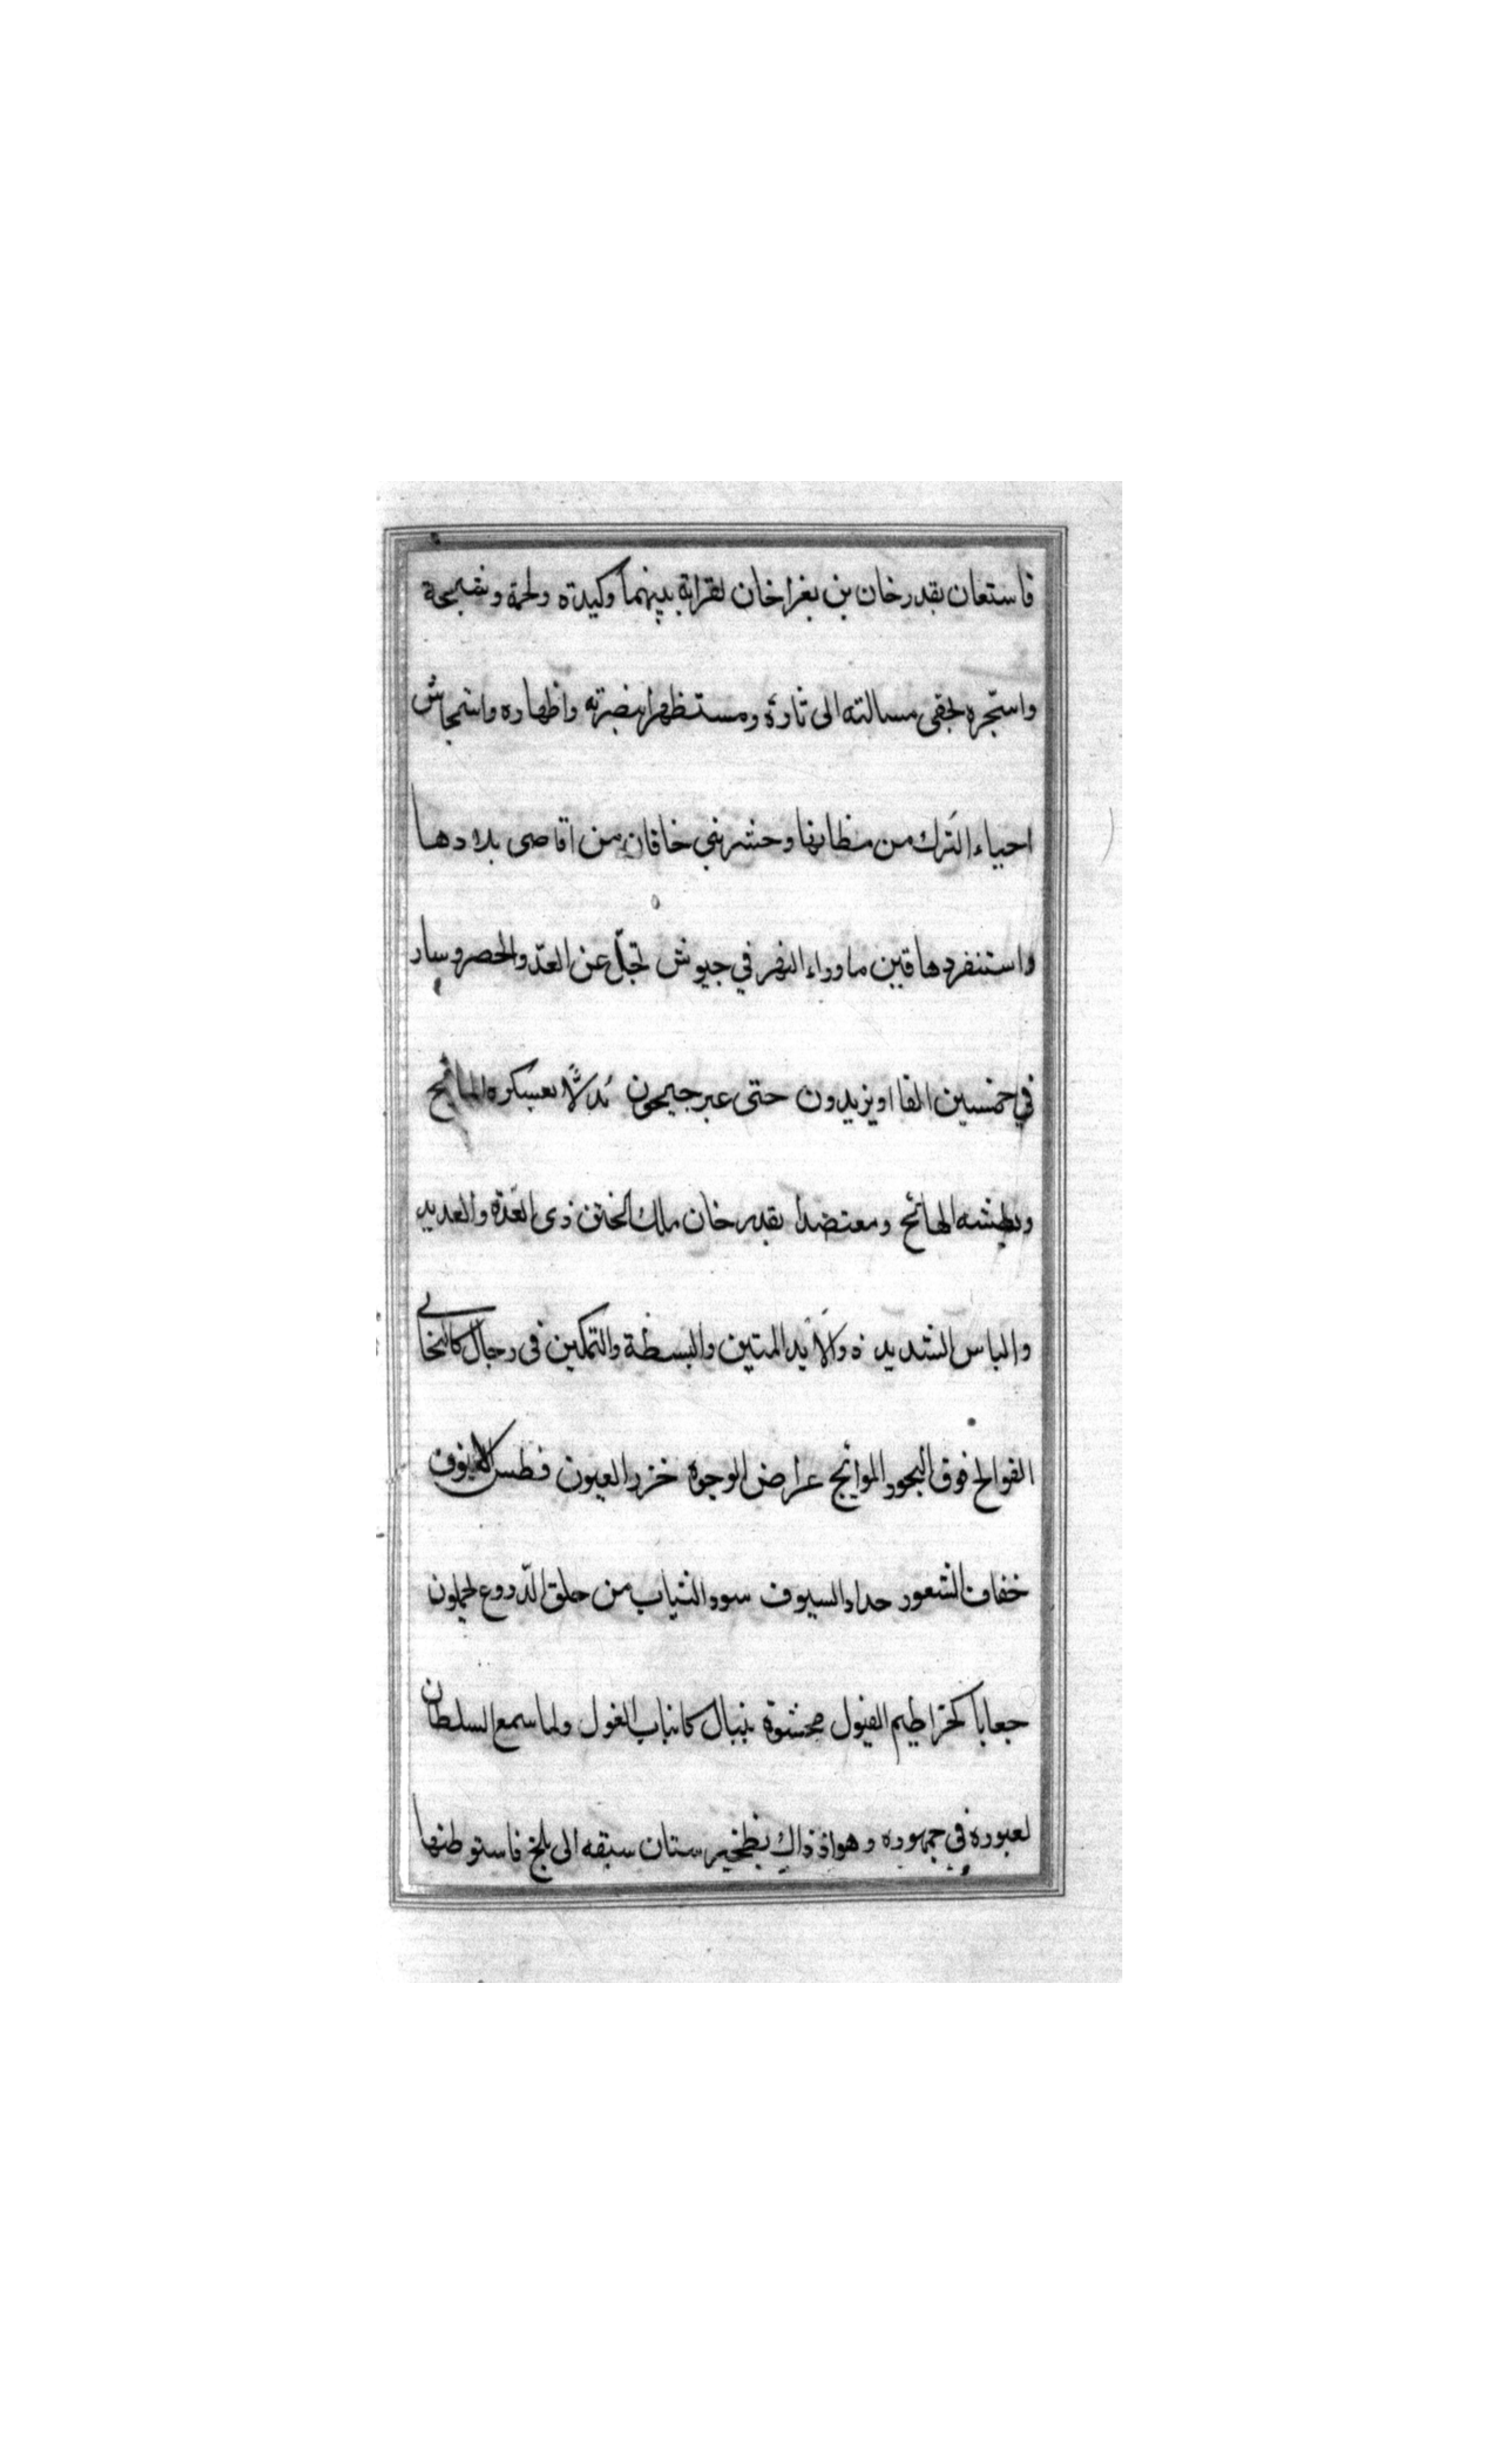 فاستعان بقدرخان بن بغراخان لقرابة بينهما وكيدة ولحمة ونسيجة
واستجره لحقى مسالته الى ثارة ومستظهرا بنصرته واظهاره واستجاش
احياء الترك من مظانها وحشر بني خاقان من اقاصى بلادها
واستنفر دهاقين ماوراء النهر في جيوش تجل عن العدّ والحصر وسار
في خمسين الفا اويزيدون حتى عبر جيحون مُدلّا بعسكره المائج
وبطشه الهائج ومعتضدا بقدرخان ملك الختن ذى العدّة والعديد
والباس الشديد والأيد المتين والبسطة والتمكين فى رجال كالبخاتي
الفوالج فوق البحور الموائج عراض الوجوه خزر العيون فطس الانوف
خفاف الشعور حداد السيوف سود الثياب من حلق الدّروع يحملون
جعابا كخراطيم الفيول محشوة بنبال كانياب الغول ولما سمع السلطان
لعبوره في جمهوره وهواذ ذاك بطخيرستان سبقه الى بلخ فاستوطنها